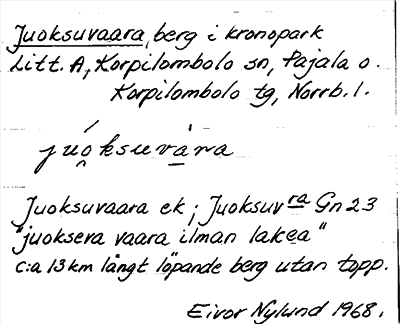 Juoksuvaara, berg i kronopark
Litt. A, Korpilombolo sn, Pajala o.
Korpilombolo tg, Norrb. l.
júo̭ksuvàra
Juoksuvaara ek; Juoksuvra Gn 23
"juokseva vaara ilman lakea"
c:a 13 km långt löpande berg utan topp.
Eivor Nylund 1968.